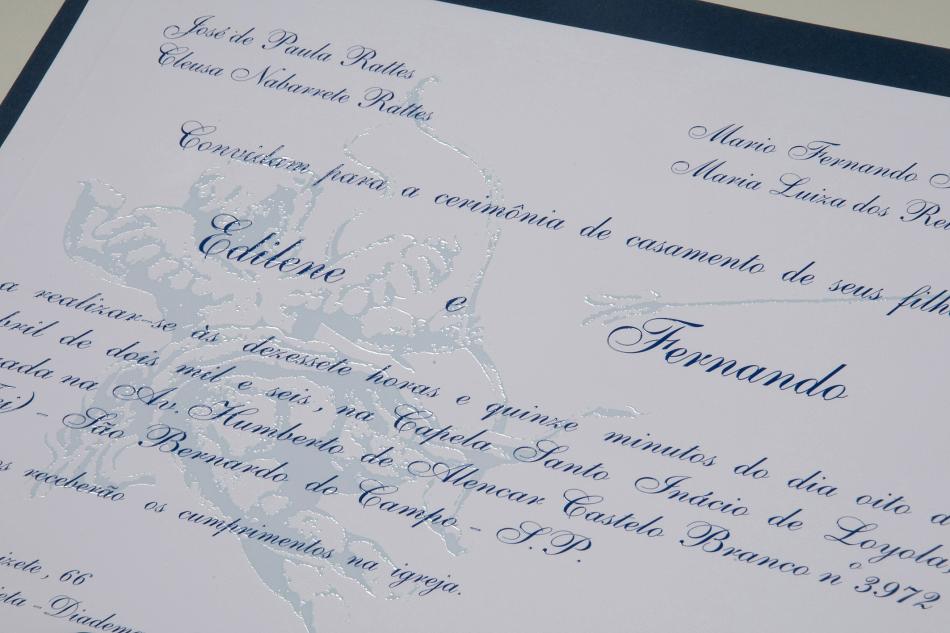 José de Paula Rattes
Cleusa Nabarrete Rattes
Mario Fernando
Maria Luiza dos
Convidam para a cerimônia de casamento de seus
Edilene
e
Fernando
a realizar-se às dezessete horas e quinze minutos do dia oito
de dois mil e seis, na Capela Santo Inácio de Loyola,
na Av. Humberto de Alencar Castelo Branco nº 3972
- São Bernardo do Campo - S.P.
receberão os cumprimentos na igreja.
66
- Diadema